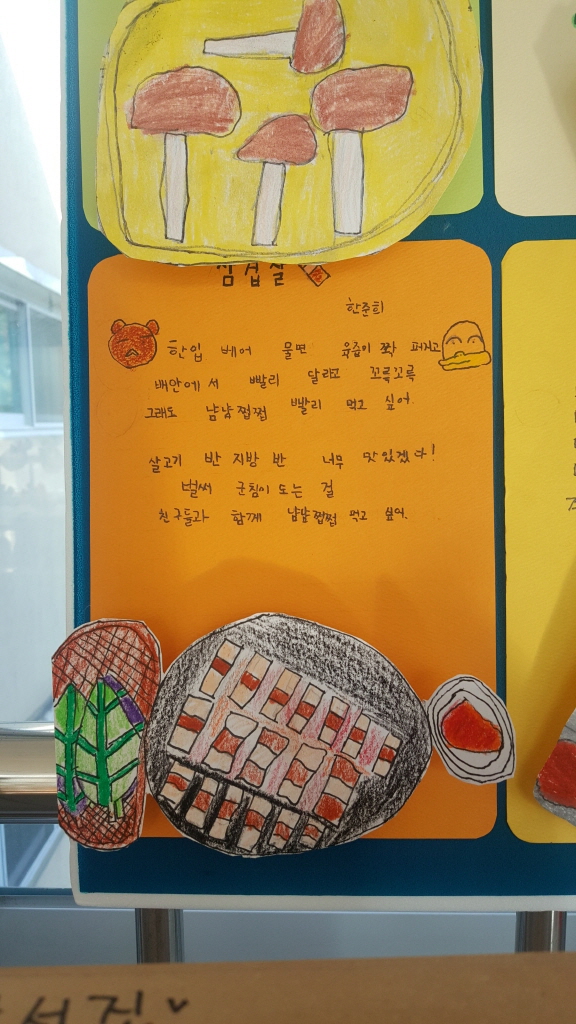 삼겹살
한준희
한입 베어 물면 육즙이 쫙 퍼지고
배안에서 빨리 달라고 꼬륵꼬륵
그래도 냠냠쩝쩝 빨리 먹고 싶어.
살고기 반 지방 반 너무 맛있겠다!
벌써 군침이 도는 걸
친구들과 함께 냠냠쩝쩝 먹고 싶어.